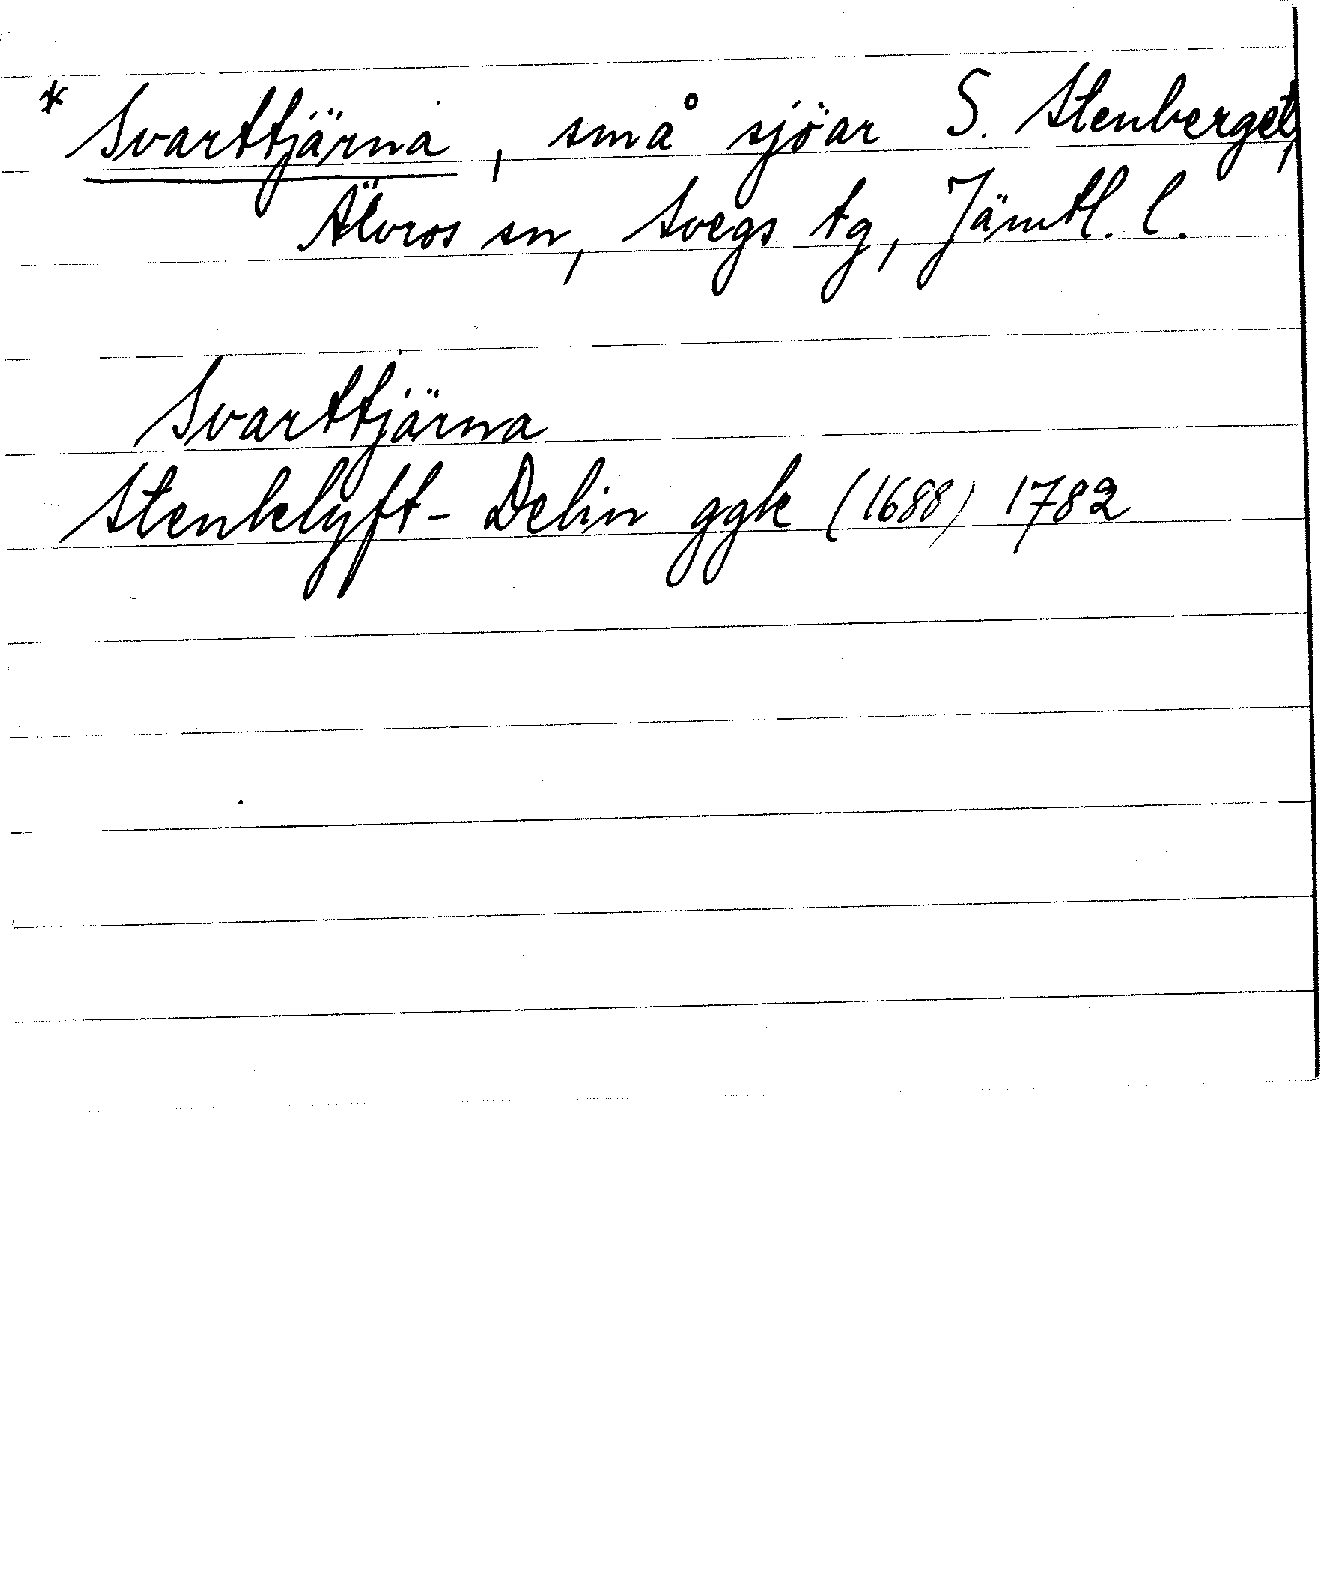 * Svarttjärna, små sjöar S. Stenberget,
Älvros sn, Svegs tg, Jämtl. l.
Svarttjärna
Stenklyft - Delin ggk (1688) 1782